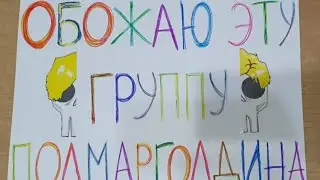 ОБОЖАЮ ЭТУ
ГРУППУ
ПОЛМАРГОЛДИНА